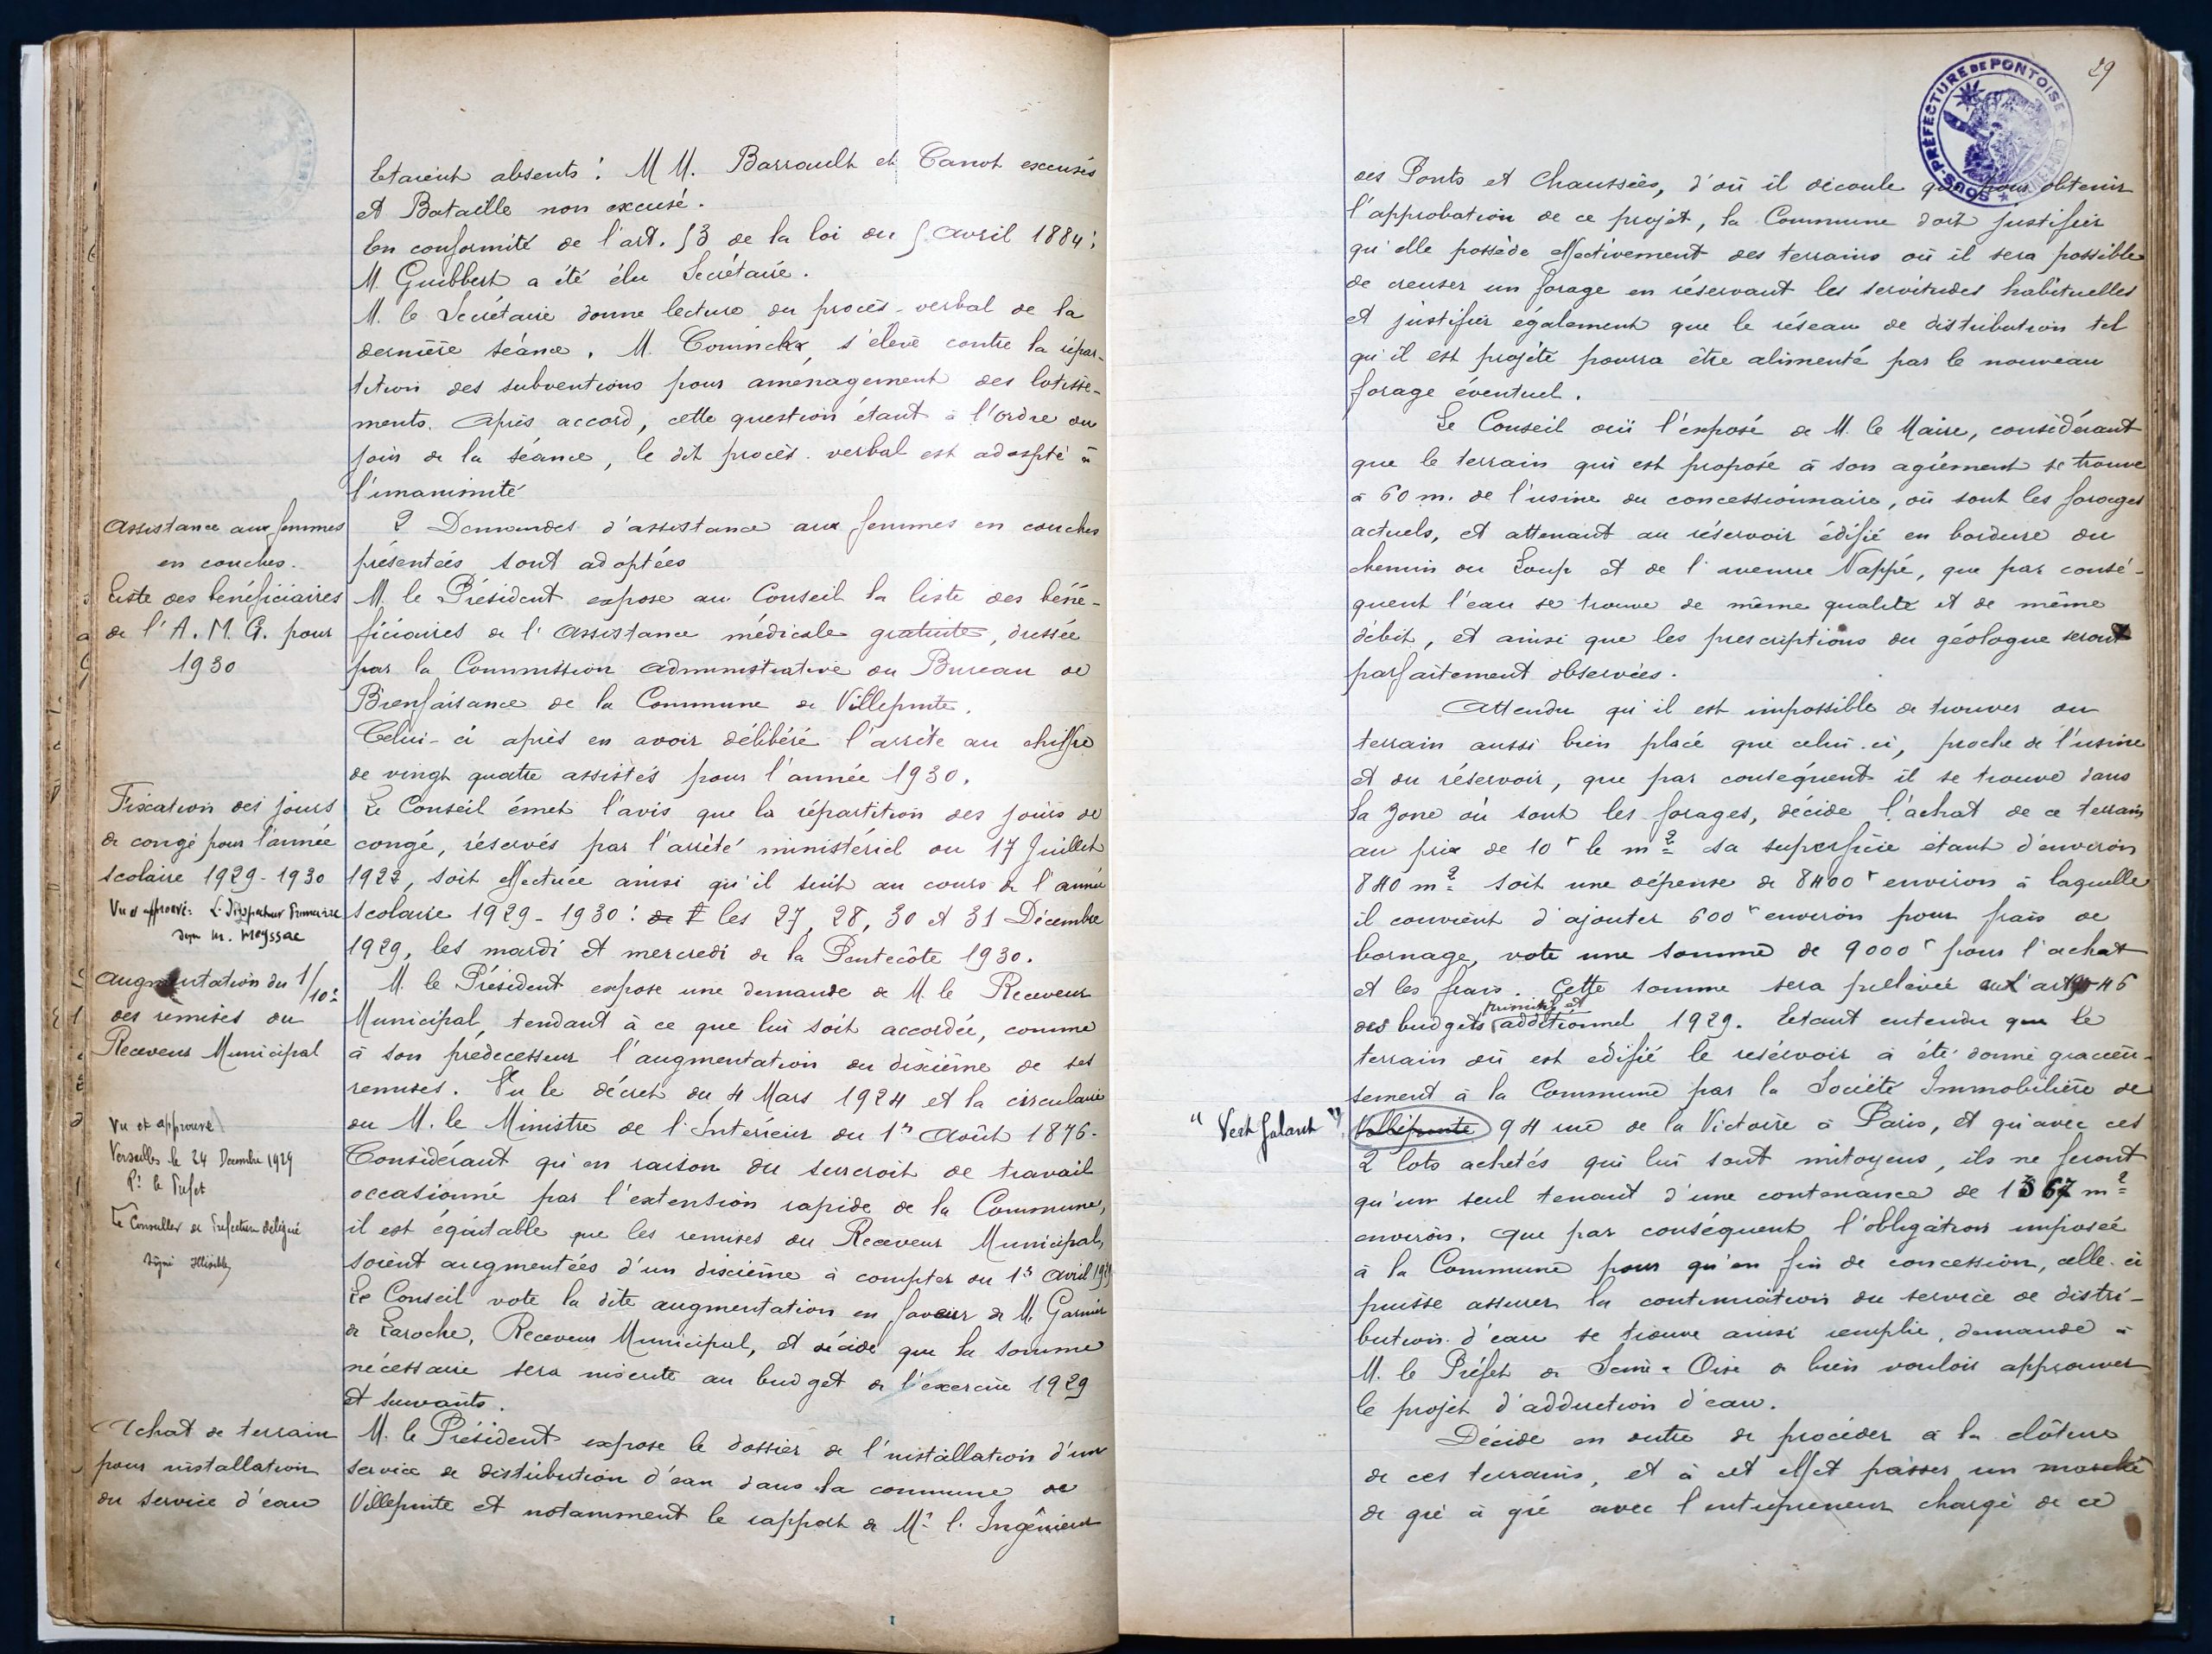 Etaient absents : M M. Barrault et Canot excusés
et Bataille non excusé.
En conformité de l'art. 53 de la loi du 5 Avril 1884 :
M. Guibbert a été élu Secrétaire.
M. le Secrétaire donne lecture du procès-verbal de la
dernière séance. M. Coninckx, s'élève contre la répar-
tition des subventions pour aménagement des lotisse-
ments. Après accord, cette question étant à l'ordre du
jour de la séance, le dit procès-verbal est adopté à
l'unanimité
Assistance aux femmes
en couches.
2 Demandes d'assistance aux femmes en couches
présentées sont adoptées
Liste des bénéficiaires
de l'A. M. G. pour
1930
M. le Président expose au Conseil la liste des béné-
ficiaires de l'Assistance médicale gratuite, dressée
par la Commission administrative du Bureau de
Bienfaisance de la Commune de Villepinte.
Celui-ci après en avoir délibéré l'arrête au chiffre
de vingt quatre assistés pour l'année 1930.
Fixation des jours
de congé pour l'année
scolaire 1929-1930
Vu et approuvé : L'Inspecteur Primaire
Signé M. Meyssac
Le Conseil émet l'avis que la répartition des jours de
congé, réservés par l'arrêté ministériel du 17 Juillet
1922, soit effectuée ainsi qu'il suit au cours de l'année
scolaire 1929-1930 : les 27, 28, 30 et 31 Décembre
1929, les mardi et mercredi de la Pentecôte 1930.
Augmentation du 1/10e
des remises du
Receveur Municipal
M. le Président expose une demande de M. le Receveur
Municipal, tendant à ce que lui soit accordée, comme
à son prédecesseur l'augmentation du dixième de ses
remises. Vu le décret du 4 Mars 1924 et la circulaire
du M. le Ministre de l'Intérieur du 1er Août 1876.
Considérant qu'en raison du surcroit de travail
occasionné par l'extension rapide de la Commune,
il est équitable que les remises du Receveur Municipal,
soient augmentées d'un dixième à compter du 1er Avril 1929
Le Conseil vote la dite augmentation en faveur de M. Garnier
de Laroche, Receveur Municipal, et décide que la somme
nécessaire sera inscrite au budget de l'exercice 1929
et suivants.
Vu et approuvé
Versailles le 24 Decembre 1929
Pr le Préfet
Le Conseiller de Préfecture délégué
Signé Illisible
Achat de terrain
pour installation
du service d'eau
M. le Président expose le dossier de l'installation d'un
service de distribution d'eau dans la commune de
Villepinte et notamment le rapport de Mr l'Ingénieur
29
SOUS-PRÉFECTURE DE PONTOISE
des Ponts et Chaussées, d'où il découle que pour obtenir
l'approbation de ce projet, la Commune doit justifier
qu'elle possède effectivement des terrains où il sera possible
de creuser un forage en réservant les servitudes habituelles
et justifier également que le réseau de distribution tel
qu'il est projeté pourra être alimenté par le nouveau
forage éventuel.
Le Conseil ouï l'exposé de M. le Maire, considérant
que le terrain qui est proposé à son agrément se trouve
à 60 m. de l'usine du concessionnaire, où sont les forages
actuels, et attenant au réservoir édifié en bordure du
chemin du Loup et de l'avenue Nappé, que par consé-
quent l'eau se trouve de même qualité et de même
débit, et ainsi que les prescriptions du géologue seront
parfaitement observées.
Attendu qu'il est impossible de trouver un
terrain aussi bien placé que celui-ci, proche de l'usine
et du réservoir, que par conséquent il se trouve dans
la zone où sont les forages, décide l'achat de ce terrain
au prix de 10 f le m2 sa superficie étant d'environ
840 m2 soit une dépense de 8400 f environ à laquelle
il convient d'ajouter 600 f environ pour frais de
bornage, vote une somme de 9000 f pour l'achat
et les frais. Cette somme sera prélevée aux art 46
primitif et
des budgets additionnel 1929. Etant entendu que le
terrain où est édifié le réservoir a été donné gracieu-
sement à la Commune par la Société Immobilière de
"Vert Galant" Villepinte 94 rue de la Victoire à Paris, et qu'avec ces
2 lots achetés qui lui sont mitoyens, ils ne feront
qu'un seul tenant d'une contenance de 1367 m2
environ. Que par conséquent l'obligation imposée
à la Commune pour qu'en fin de concession, celle-ci
puisse assurer la continuation du service de distri-
bution d'eau se trouve ainsi remplie, demande à
M. le Préfet de Seine & Oise de bien vouloir approuver
le projet d'adduction d'eau.
Décide en outre de procéder à la clôture
de ces terrains, et à cet effet passer un marché
de gré à gré avec l'entrepreneur chargé de ce